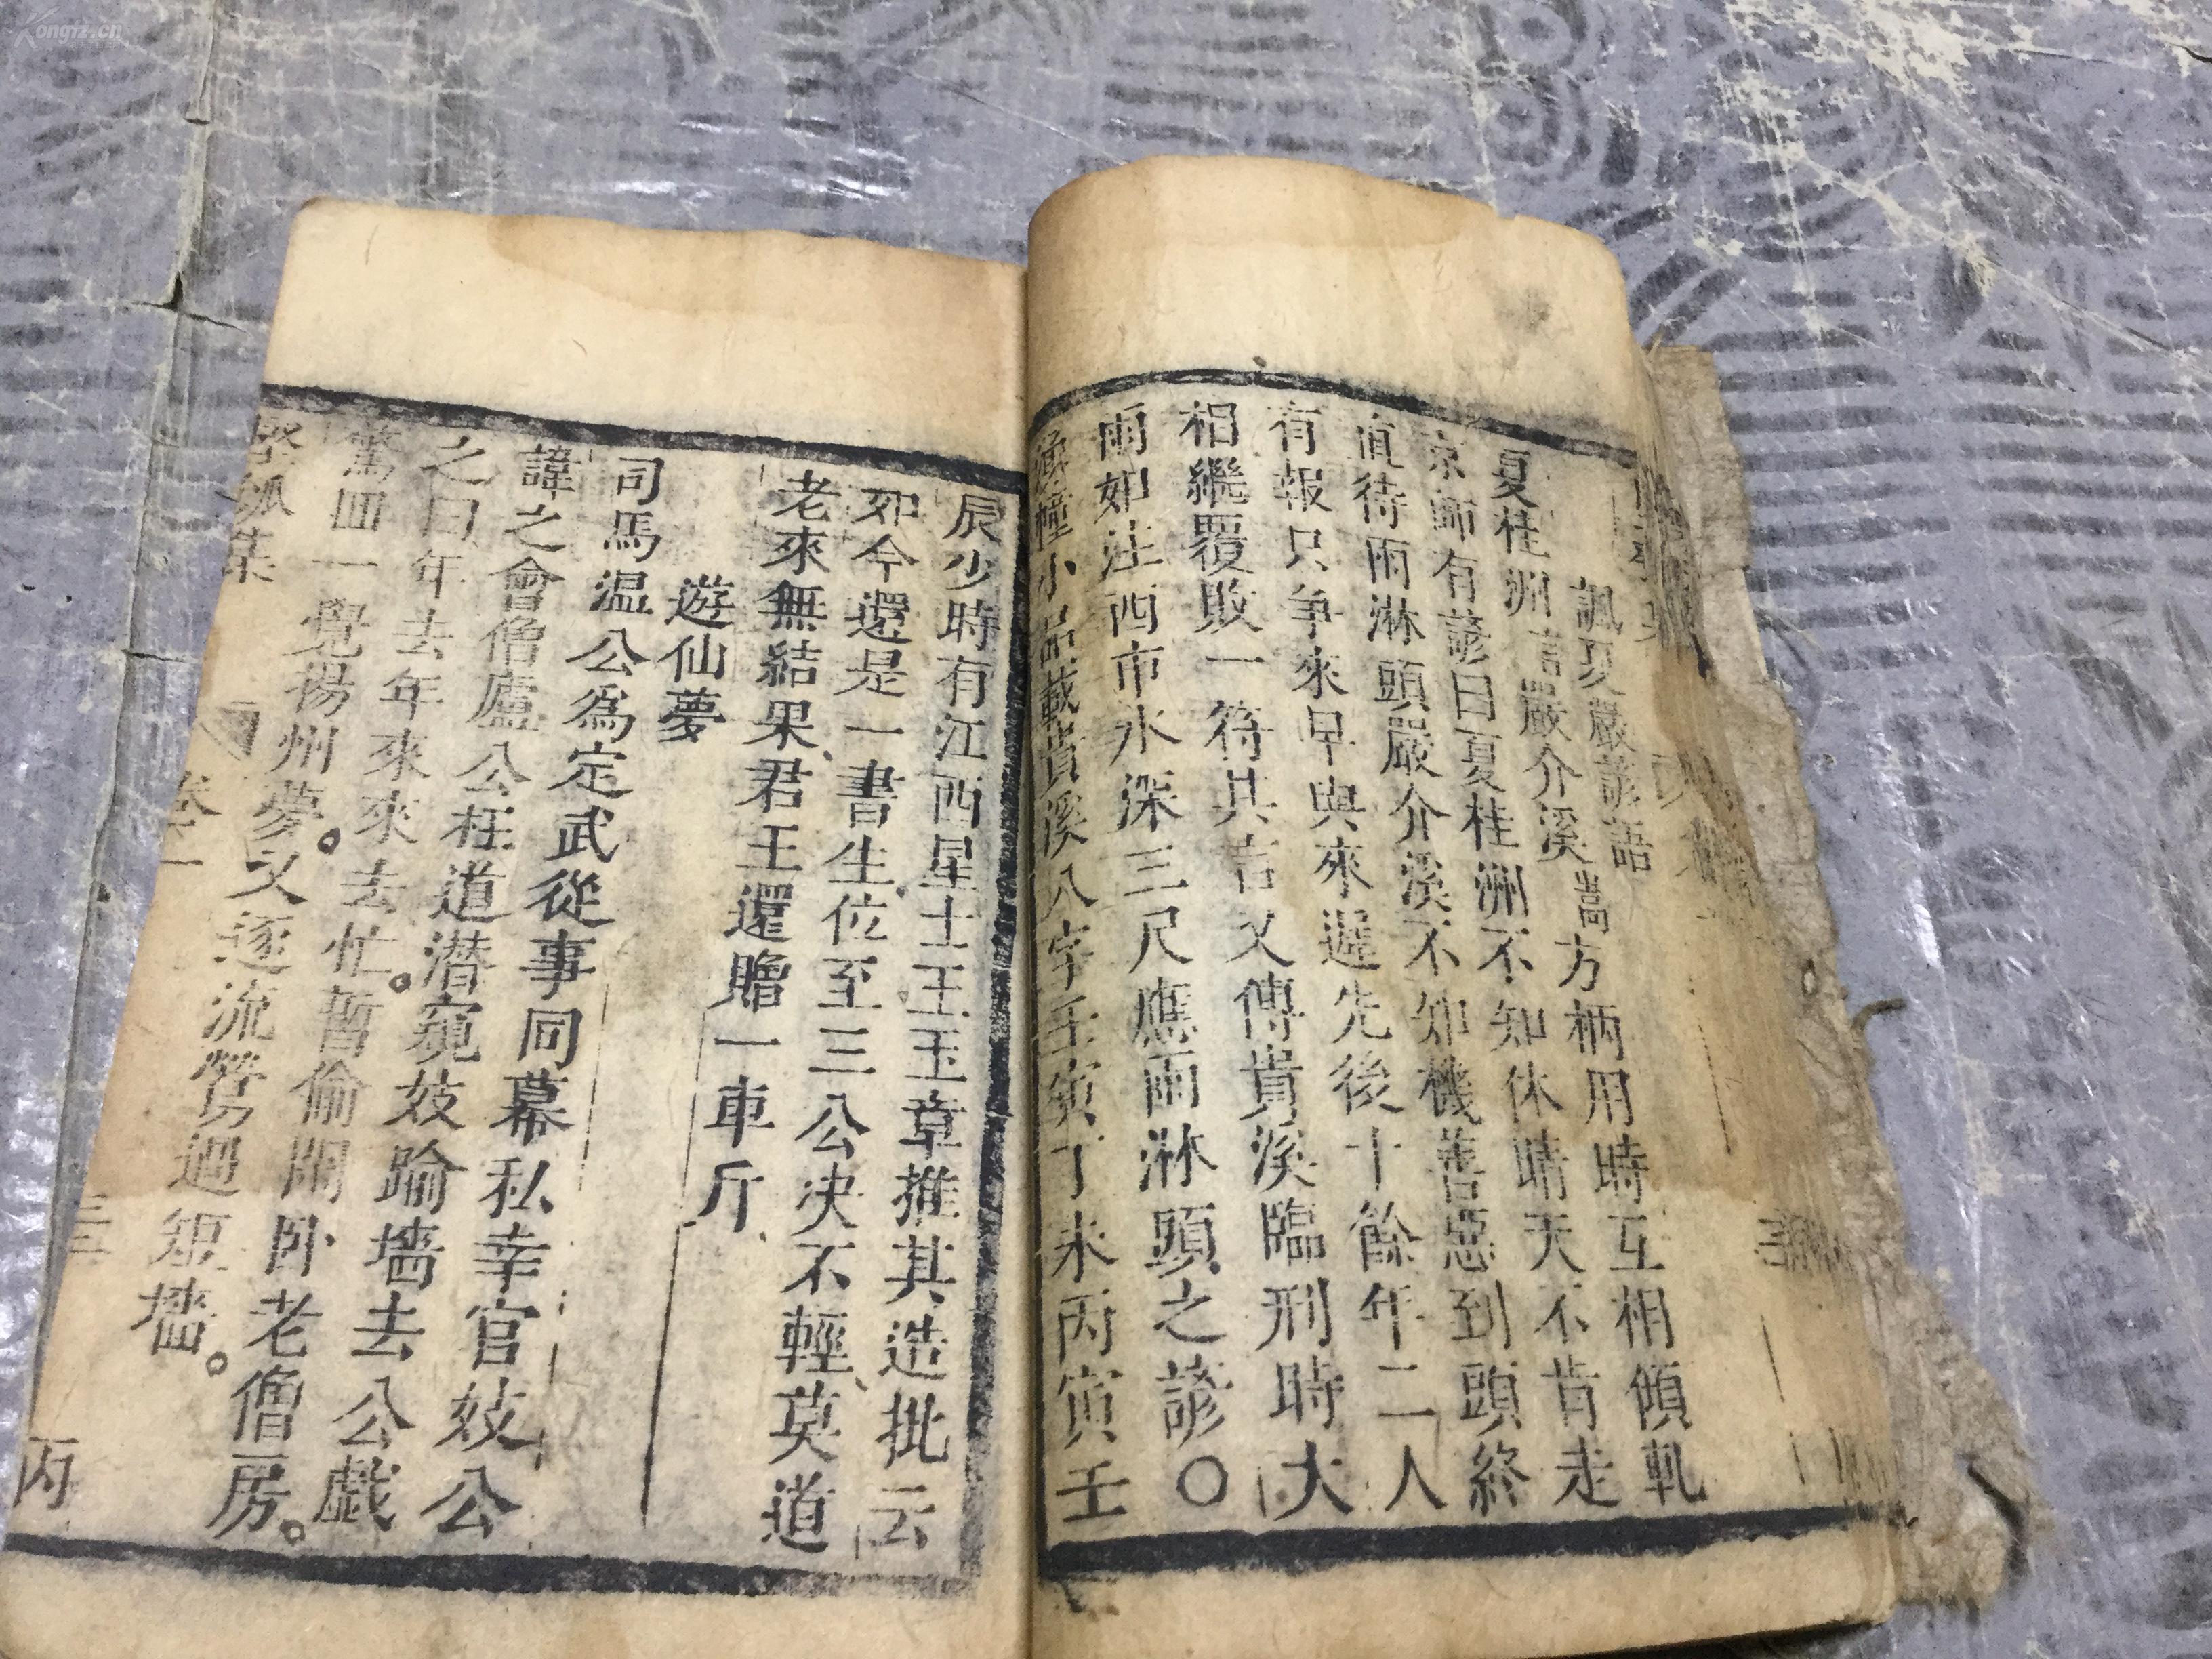 諷夏嚴諺語
夏桂洲言嚴介溪嵩方柄用時互相傾軋
京師有諺曰夏桂洲不知休晴天不肯走
直待雨淋頭嚴介溪不知機善惡到頭終
有報只争來早與來遲先後十餘年二人
相繼覆敗一符其言又傳貴溪臨刑時大
雨如注西市水深三尺應雨淋頭之諺〇
湧幢小品載貴溪八字壬寅丁未丙寅壬
辰少時有江西星士王玉章推其造批云
如今還是一書生位至三公决不輕莫道
老來無結果君王還贈一車斤
遊仙夢
司馬温公為定武從事同幕私幸官妓公
諱之會僧廬公枉道潜窺妓踰墻去公戲
之曰年去年來來去忙暫偷閒卧老僧房
驚回一覺揚州夢又逐流鶯過短墻
堅瓠集 卷一 三三 丙
kongfz.cn